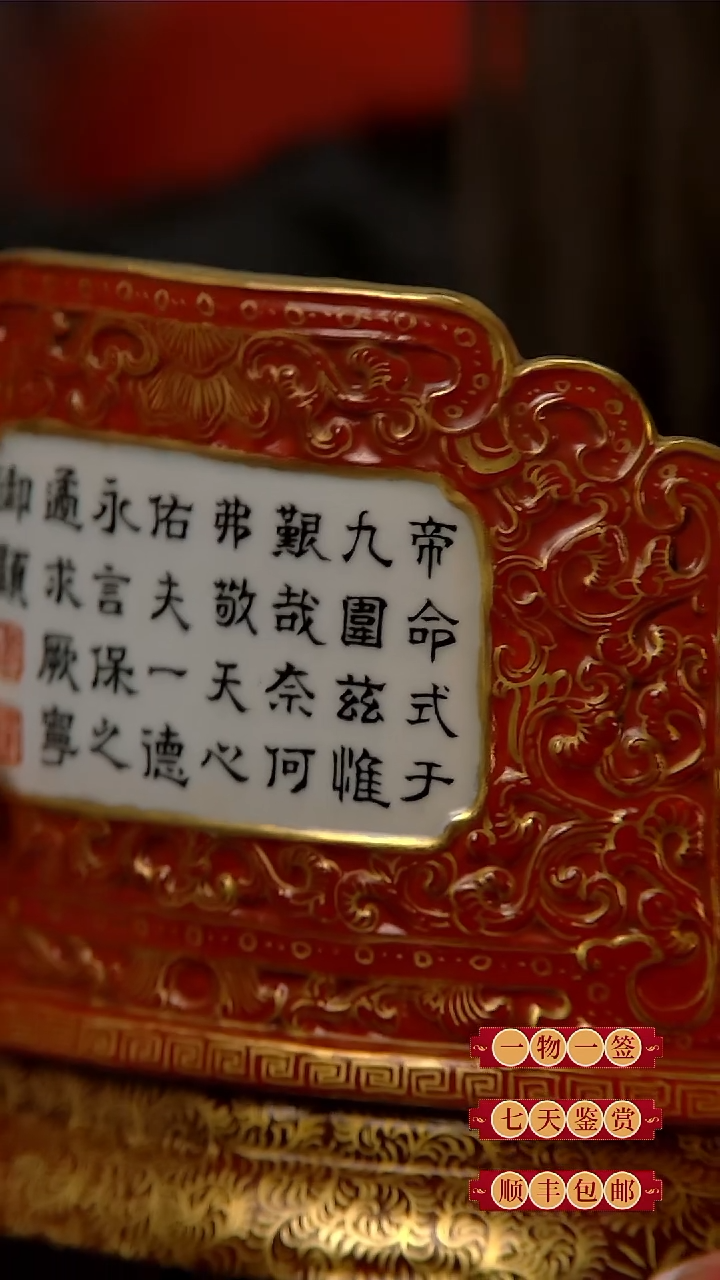 帝命式于
九圍茲惟
艱哉奈何
弗敬天心
佑夫一德
永言保之
遹求厥寧
御題
一物一签
七天鉴赏
顺丰包邮